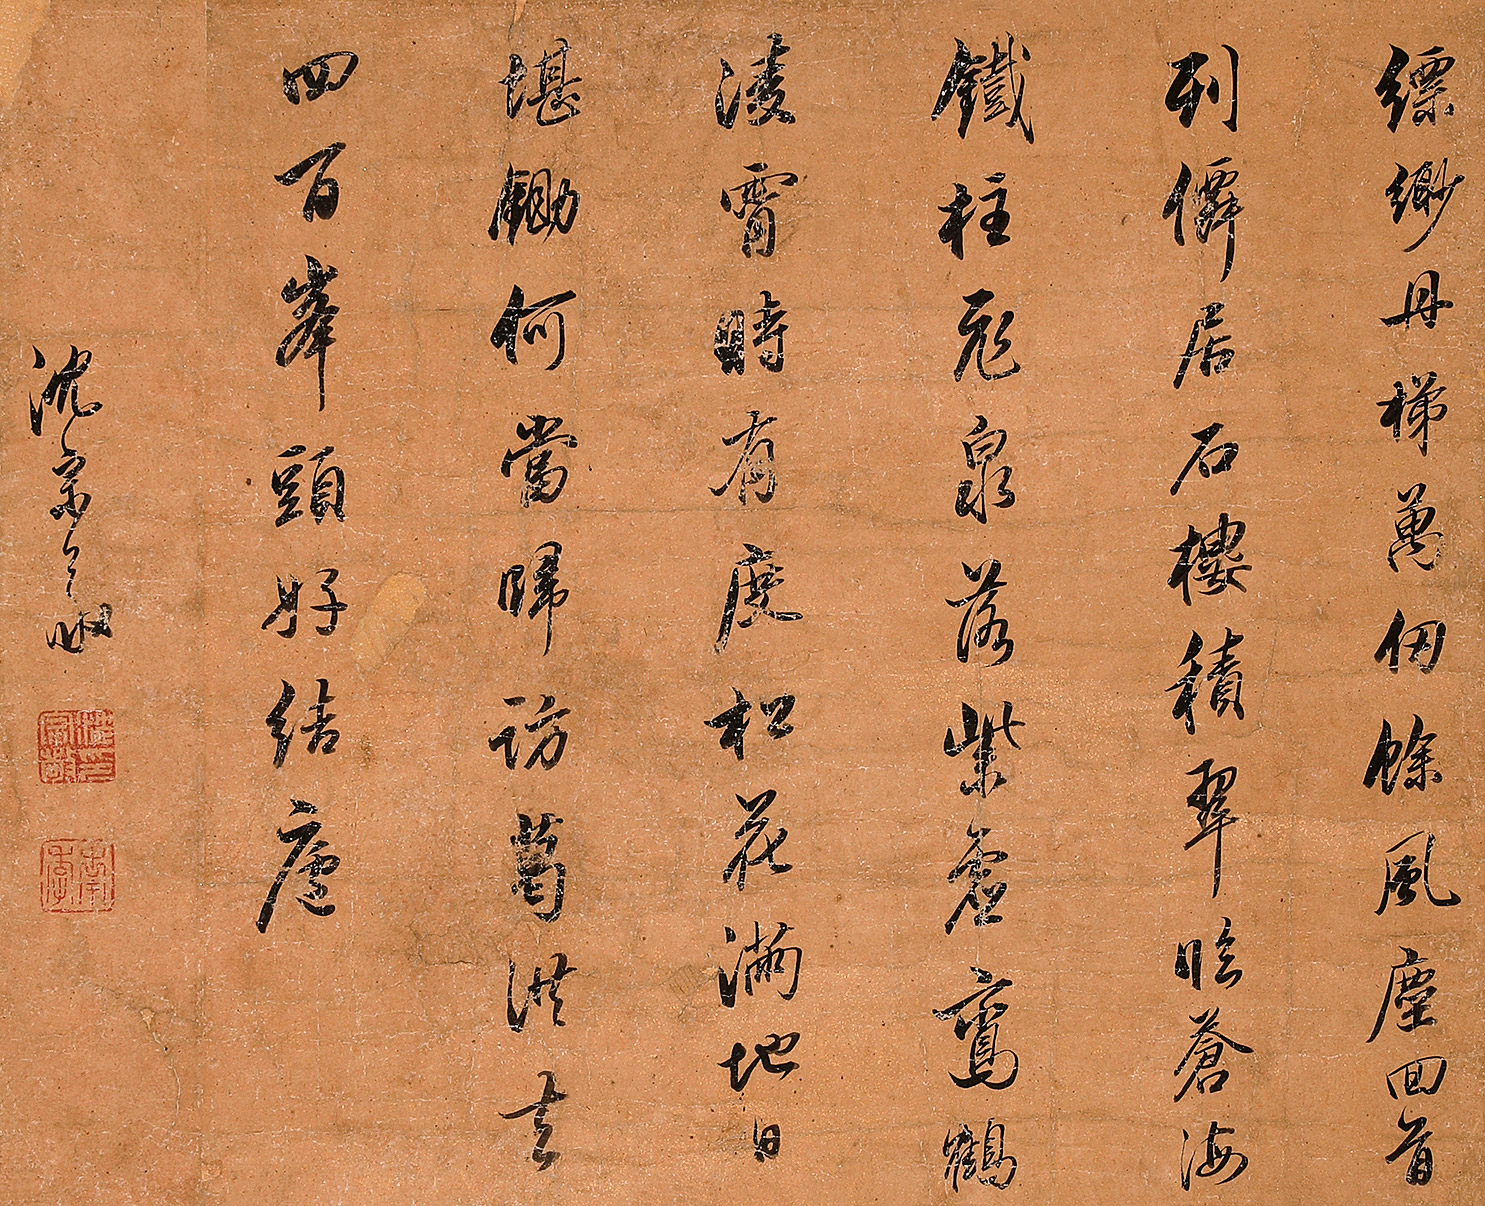 縹緲丹梯萬仞餘風塵回首
列僊居石樓積翠臨蒼海
鐵柱飛泉落紫虛鸞鶴
淩霄時有度松花滿地日
堪鋤何當歸訪葛洪去
四百峯頭好結廬
沈宗敬
沈印宗敬
南季